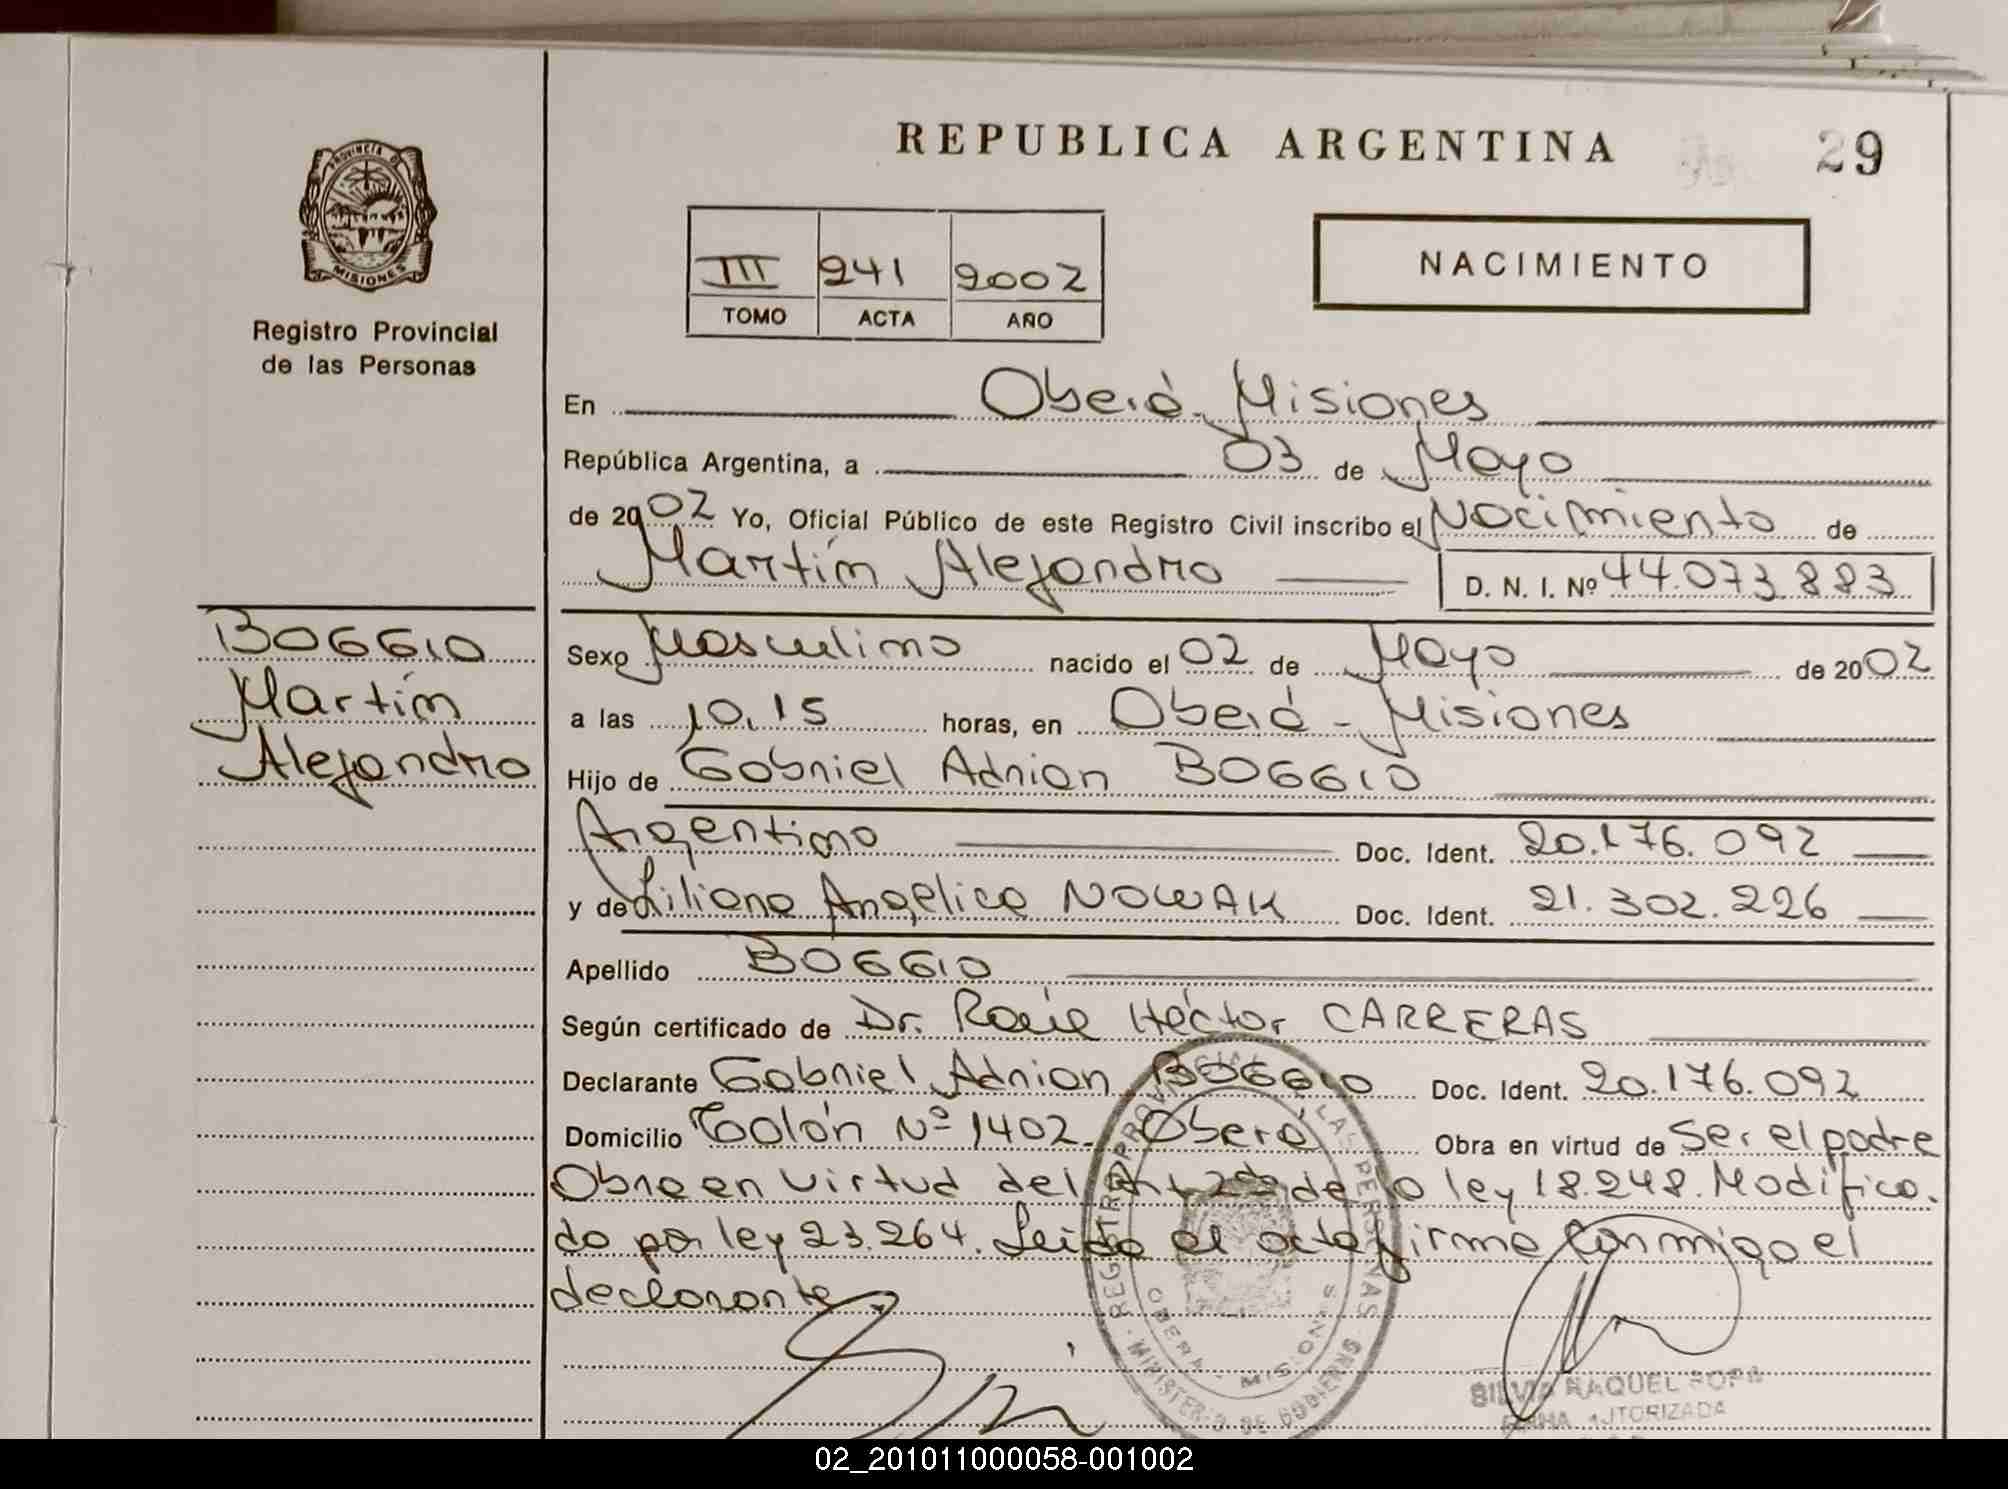 REPUBLICA ARGENTINA
29
PROVINCIA DE
MISIONES
Registro Provincial
de las Personas
III 241 2002
TOMO ACTA AÑO
NACIMIENTO
En Oberá - Misiones
República Argentina, a 03 de Mayo
de 2002 Yo, Oficial Público de este Registro Civil inscribo el Nacimiento de
Martín Alejandro D. N. I. Nº 44.073.883
BOGGIO
Martín
Alejandro
Sexo Masculino nacido el 02 de Mayo de 2002
a las 10,15 horas, en Oberá - Misiones
Hijo de Gabriel Adrian BOGGIO
Argentino Doc. Ident. 20.176.092
y de Liliana Angelica NOWAK Doc. Ident. 21.302.226
Apellido BOGGIO
Según certificado de Dr. Raúl Héctor CARRERAS
Declarante Gabriel Adrian BOGGIO Doc. Ident. 20.176.092
Domicilio Colón Nº 1402. Oberá Obra en virtud de Ser el padre
Obra en virtud del de la ley 18.248. Modifica.
do por ley 23.264. Leida el acta firma conmigo el
declarante
REGISTRO PROVINCIAL DE LAS PERSONAS
MINISTERIO DE GOBIERNO
OBERA - MISIONES
SILVIA RAQUEL
FIRMA AUTORIZADA
02_201011000058-001002